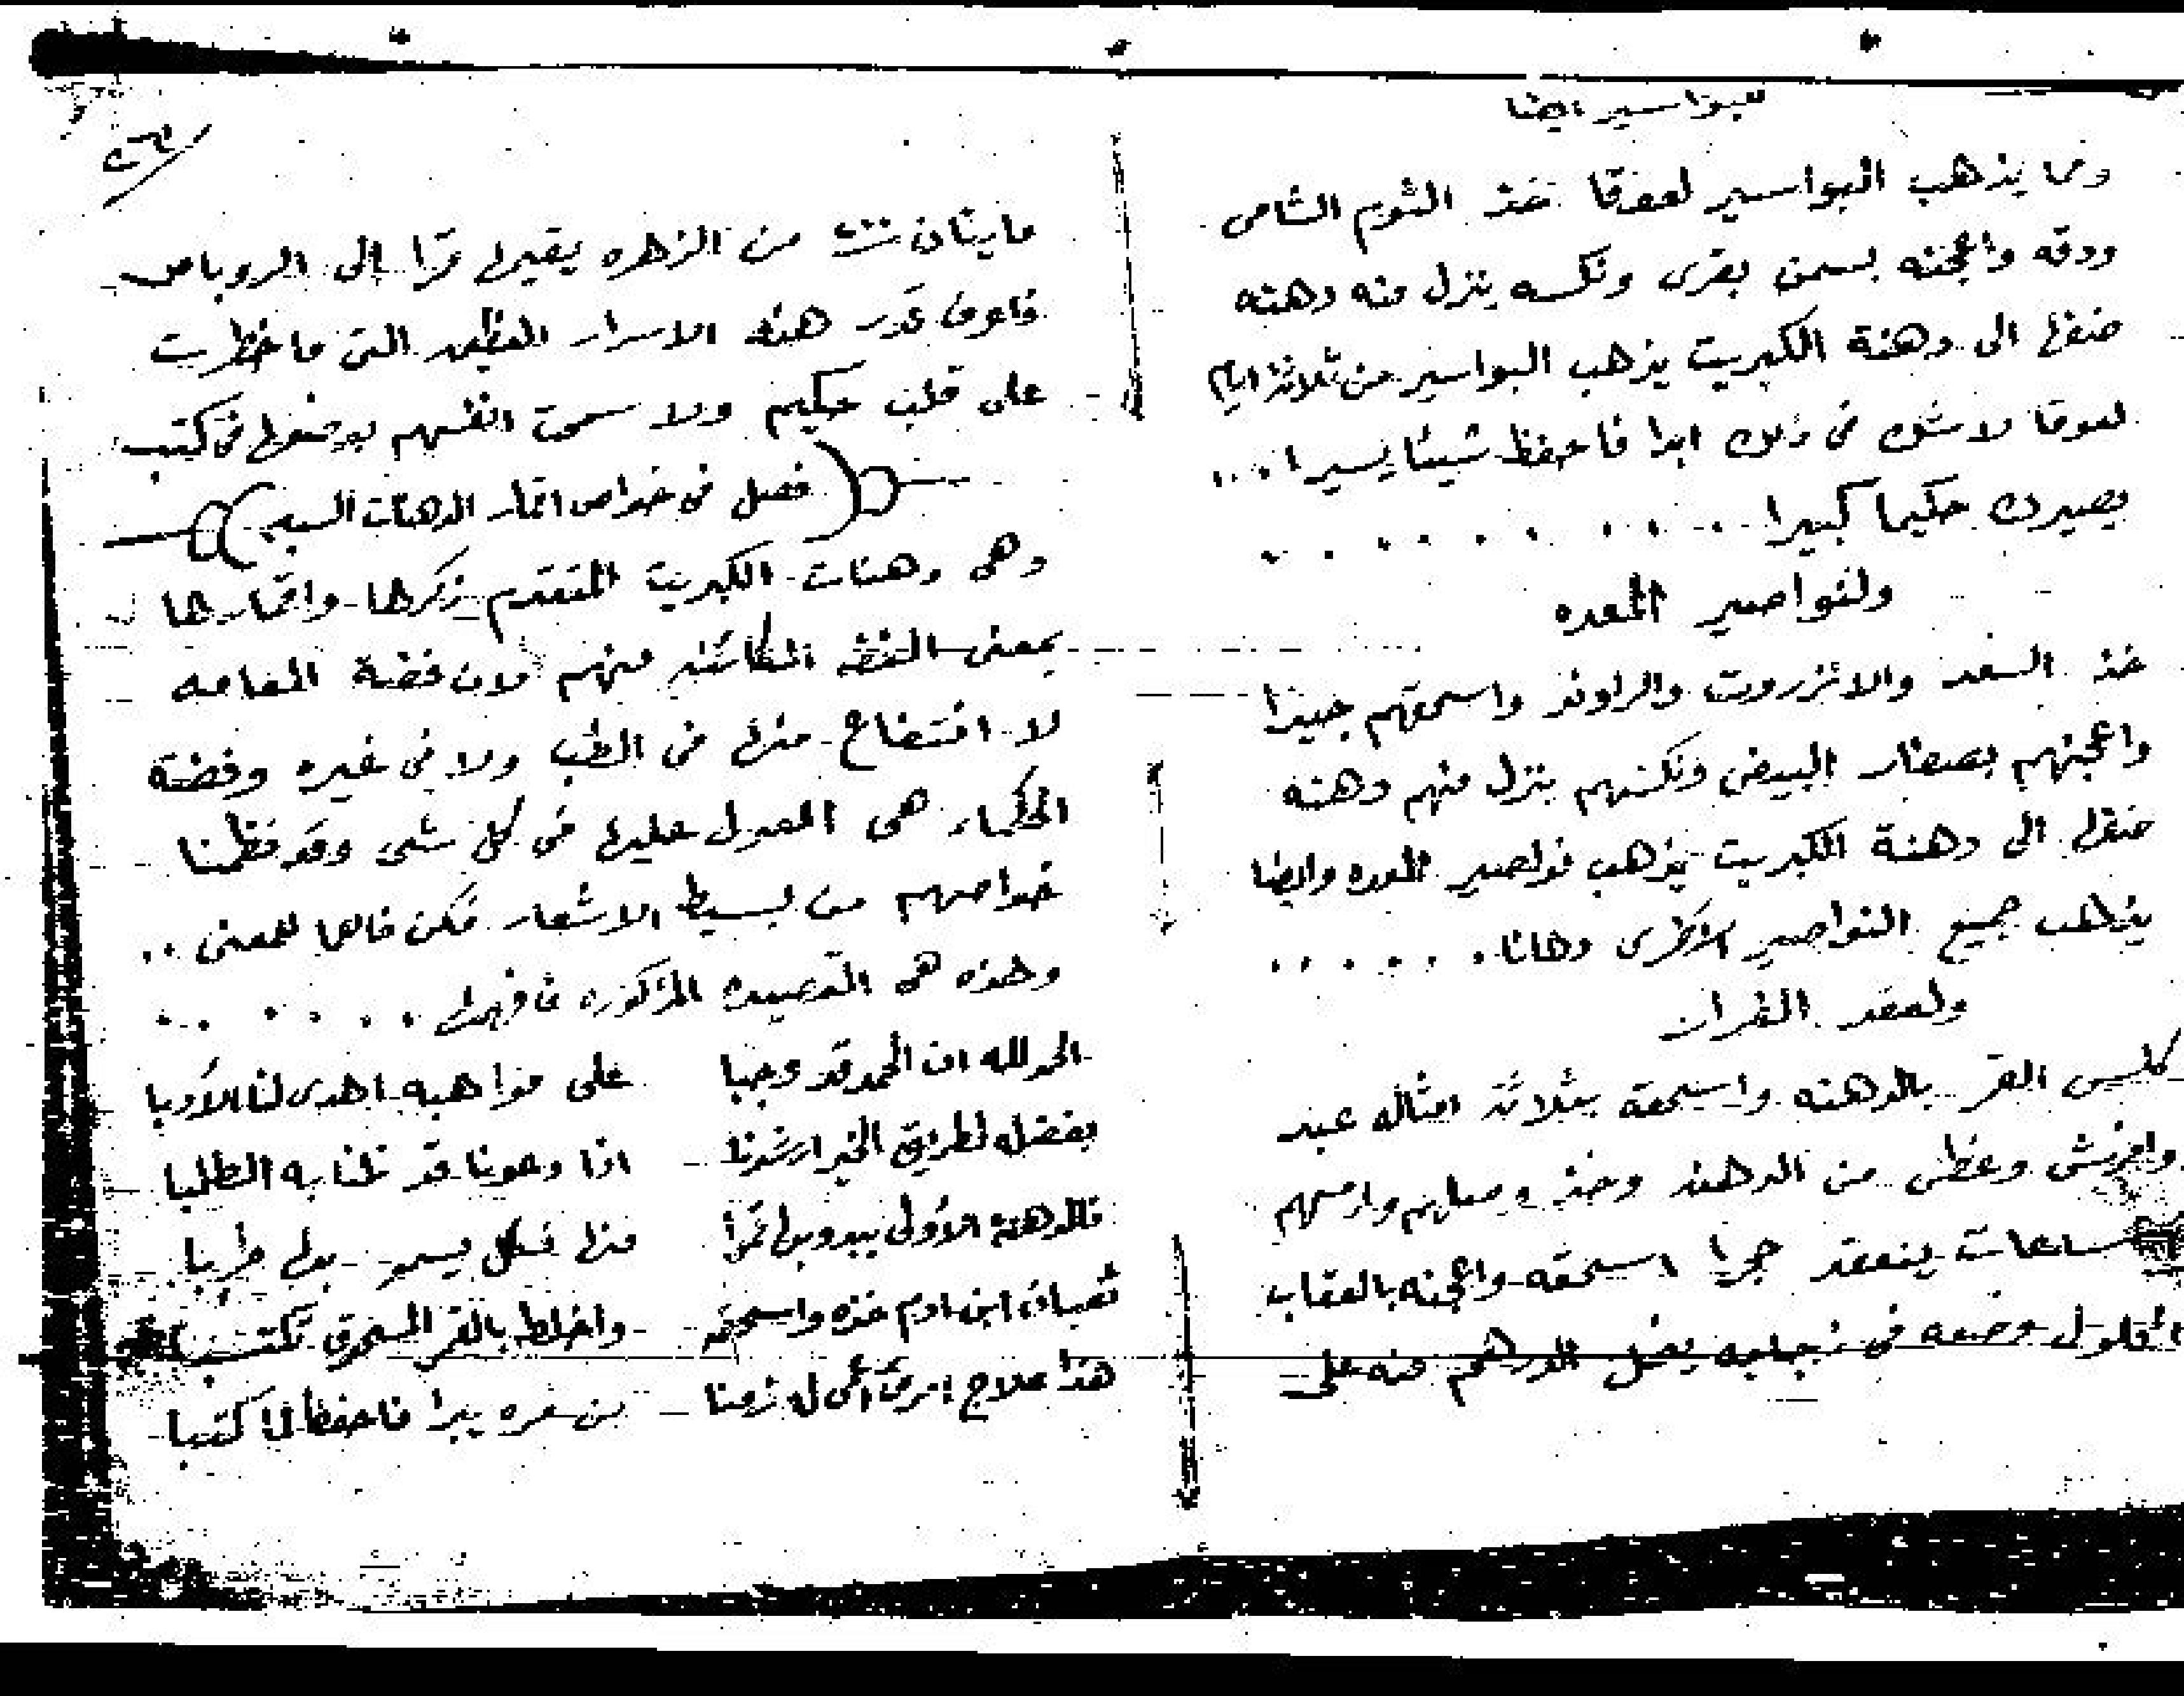 للبواسير ايضا
ومما يذهب البواسير لعوقا خذ الثوم الشامى
ودقه واعجنه بسمن بقرى ونكسه ينزل منه دهنه
ضفها الى دهنة الكبريت يذهب البواسير من ثلاثة ايام
لعوقا لا شك فى ذلك ابدا فاحفظ شيئا يسيرا ..
يصيرك حكيما كبيرا . . . . . . . . .
ولنواصير المعده
خذ السعد والانزروت والراوند واسحقهم جيدا
واعجنهم بصفار البيض ونكسهم ينزل منهم دهنه
ضفها الى دهنة الكبريت يذهب نواصير المعده وايضا
يذهب جميع النواصير الاخرى دهانا . . . . . .
ولعقد الفرار
كلس القمر بالدهنه واسحقه بثلاثة امثاله عبد
وافرش وغطى من الدهنه وخذ وارميهم
ساعات ينعقد حجرا اسحقه واعجنه بالعقاب
المحلول وضعه فى زجاجه الدرهم منه على
٢٦
مايتان ٢٠٠ من الزهره يقيمها قمرا الى الروباص
فاعرف قدر هذه الاسرار العظيمه التى ما خطرت
على قلب حكيم ولا سمحت انفسهم بوضعها فى كتب
(فصل فى خواص اقمار الدهنات السبعه)
وهى دهنات الكبريت المتقدم ذكرها واقمارها
بمعنى الفضه الكائنه منهم لان فضة العامه
لا انتفاع منها فى الطب ولا فى غيره وفضة
الحكماء هى المعول عليها فى كل شى وقد نظمنا
خواصهم من بسيط الاشعار فكن فاهما للمعنى ..
وهذه هى القصيده المذكوره فافهمها . . . . . .
الحمد لله ان الحمد قد وجبا على مواهبه اهدى لنا الادبا
بفضله لطريق الخير ارشدنا اذا دعونا قد نلنا به الطلبا
فالدهنة الاولى يبدو بها قمرا منها فكل بها طربا
ثعبان ابن ادم خذه واسحقه واخلطه بالقمر المحرق
هذا علاج امرئ اعمى له زمنا يبرا فاحفظ لما كتبا